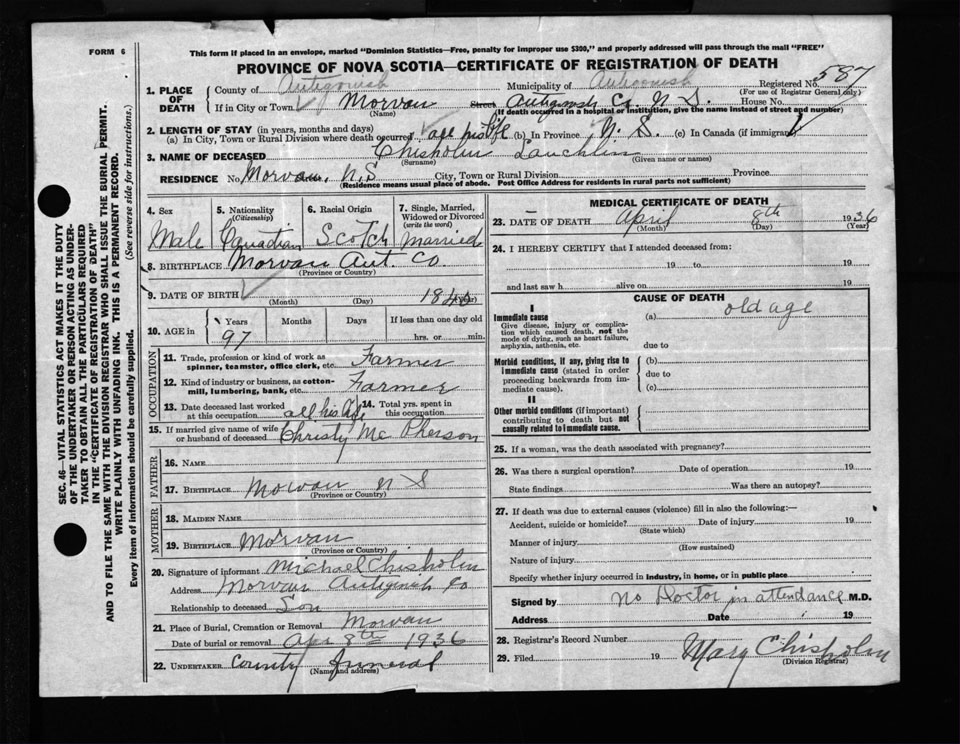 FORM 6
This form if placed in an envelope, marked "Dominion Statistics—Free, penalty for improper use $300," and properly addressed will pass through the mail "FREE"
PROVINCE OF NOVA SCOTIA—CERTIFICATE OF REGISTRATION OF DEATH
SEC. 46—VITAL STATISTICS ACT MAKES IT THE DUTY
OF THE UNDERTAKER OR PERSON ACTING AS UNDER-
TAKER TO OBTAIN ALL THE PARTICULARS REQUIRED
IN THE "CERTIFICATE OF REGISTRATION OF DEATH"
AND TO FILE THE SAME WITH THE DIVISION REGISTRAR WHO SHALL ISSUE THE BURIAL PERMIT.
WRITE PLAINLY WITH UNFADING INK. THIS IS A PERMANENT RECORD.
Every item of information should be carefully supplied. (See reverse side for instructions.)
1. PLACE OF DEATH
County of Antigonish Municipality of Antigonish Registered No. 587
(For use of Registrar General only)
If in City or Town Morvan Street Antigonish Co. N. S. House No.
(Name) (If death occurred in a hospital or institution, give the name instead of street and number)
2. LENGTH OF STAY (in years, months and days)
(a) In City, Town or Rural Division where death occurred all his life (b) In Province N. S. (c) In Canada (if immigrant)
3. NAME OF DECEASED Chisholm Lauchlin
(Surname) (Given name or names)
RESIDENCE No. Morvan, N.S City, Town or Rural Division Province
(Residence means usual place of abode. Post Office Address for residents in rural parts not sufficient)
4. Sex 5. Nationality (Citizenship) 6. Racial Origin 7. Single, Married, Widowed or Divorced (write the word)
Male Canadian Scotch Married
8. BIRTHPLACE Morvan Ant. Co.
(Province or Country)
9. DATE OF BIRTH
(Month) (Day) (Year)
10. AGE in Years Months Days If less than one day old
97 hrs. or min.
OCCUPATION
11. Trade, profession or kind of work as spinner, teamster, office clerk, etc. Farmer
12. Kind of industry or business, as cotton-mill, lumbering, bank, etc. Farmer
13. Date deceased last worked at this occupation all his life 14. Total yrs. spent in this occupation
15. If married give name of wife or husband of deceased Christy Mc Pherson
FATHER
16. NAME
17. BIRTHPLACE Morvan N S
(Province or Country)
MOTHER
18. MAIDEN NAME
19. BIRTHPLACE Morvan
(Province or Country)
20. Signature of informant Michael Chisholm
Address Morvan Antigonish Co
Relationship to deceased Son
21. Place of Burial, Cremation or Removal Morvan
Date of burial or removal Apr 8th 1936
22. UNDERTAKER County funeral
(Name and address)
MEDICAL CERTIFICATE OF DEATH
23. DATE OF DEATH April 8th 1936
(Month) (Day) (Year)
24. I HEREBY CERTIFY that I attended deceased from:
19 to 19
and last saw h alive on 19
CAUSE OF DEATH
I
Immediate cause (a) old age
Give disease, injury or complication which caused death, not the mode of dying, such as heart failure, asphyxia, asthenia, etc.
due to
Morbid conditions, if any, giving rise to immediate cause (stated in order proceeding backwards from immediate cause).
(b)
due to
(c)
II
Other morbid conditions (if important) contributing to death but not causally related to immediate cause.
25. If a woman, was the death associated with pregnancy?
26. Was there a surgical operation? Date of operation 19
State findings Was there an autopsy?
27. If death was due to external causes (violence) fill in also the following:—
Accident, suicide or homicide? Date of injury 19
(State which)
Manner of injury
(How sustained)
Nature of injury
Specify whether injury occurred in industry, in home, or in public place
Signed by no Doctor in attendance M.D.
Address Date 19
28. Registrar's Record Number
29. Filed 19 Mary Chisholm
(Division Registrar)